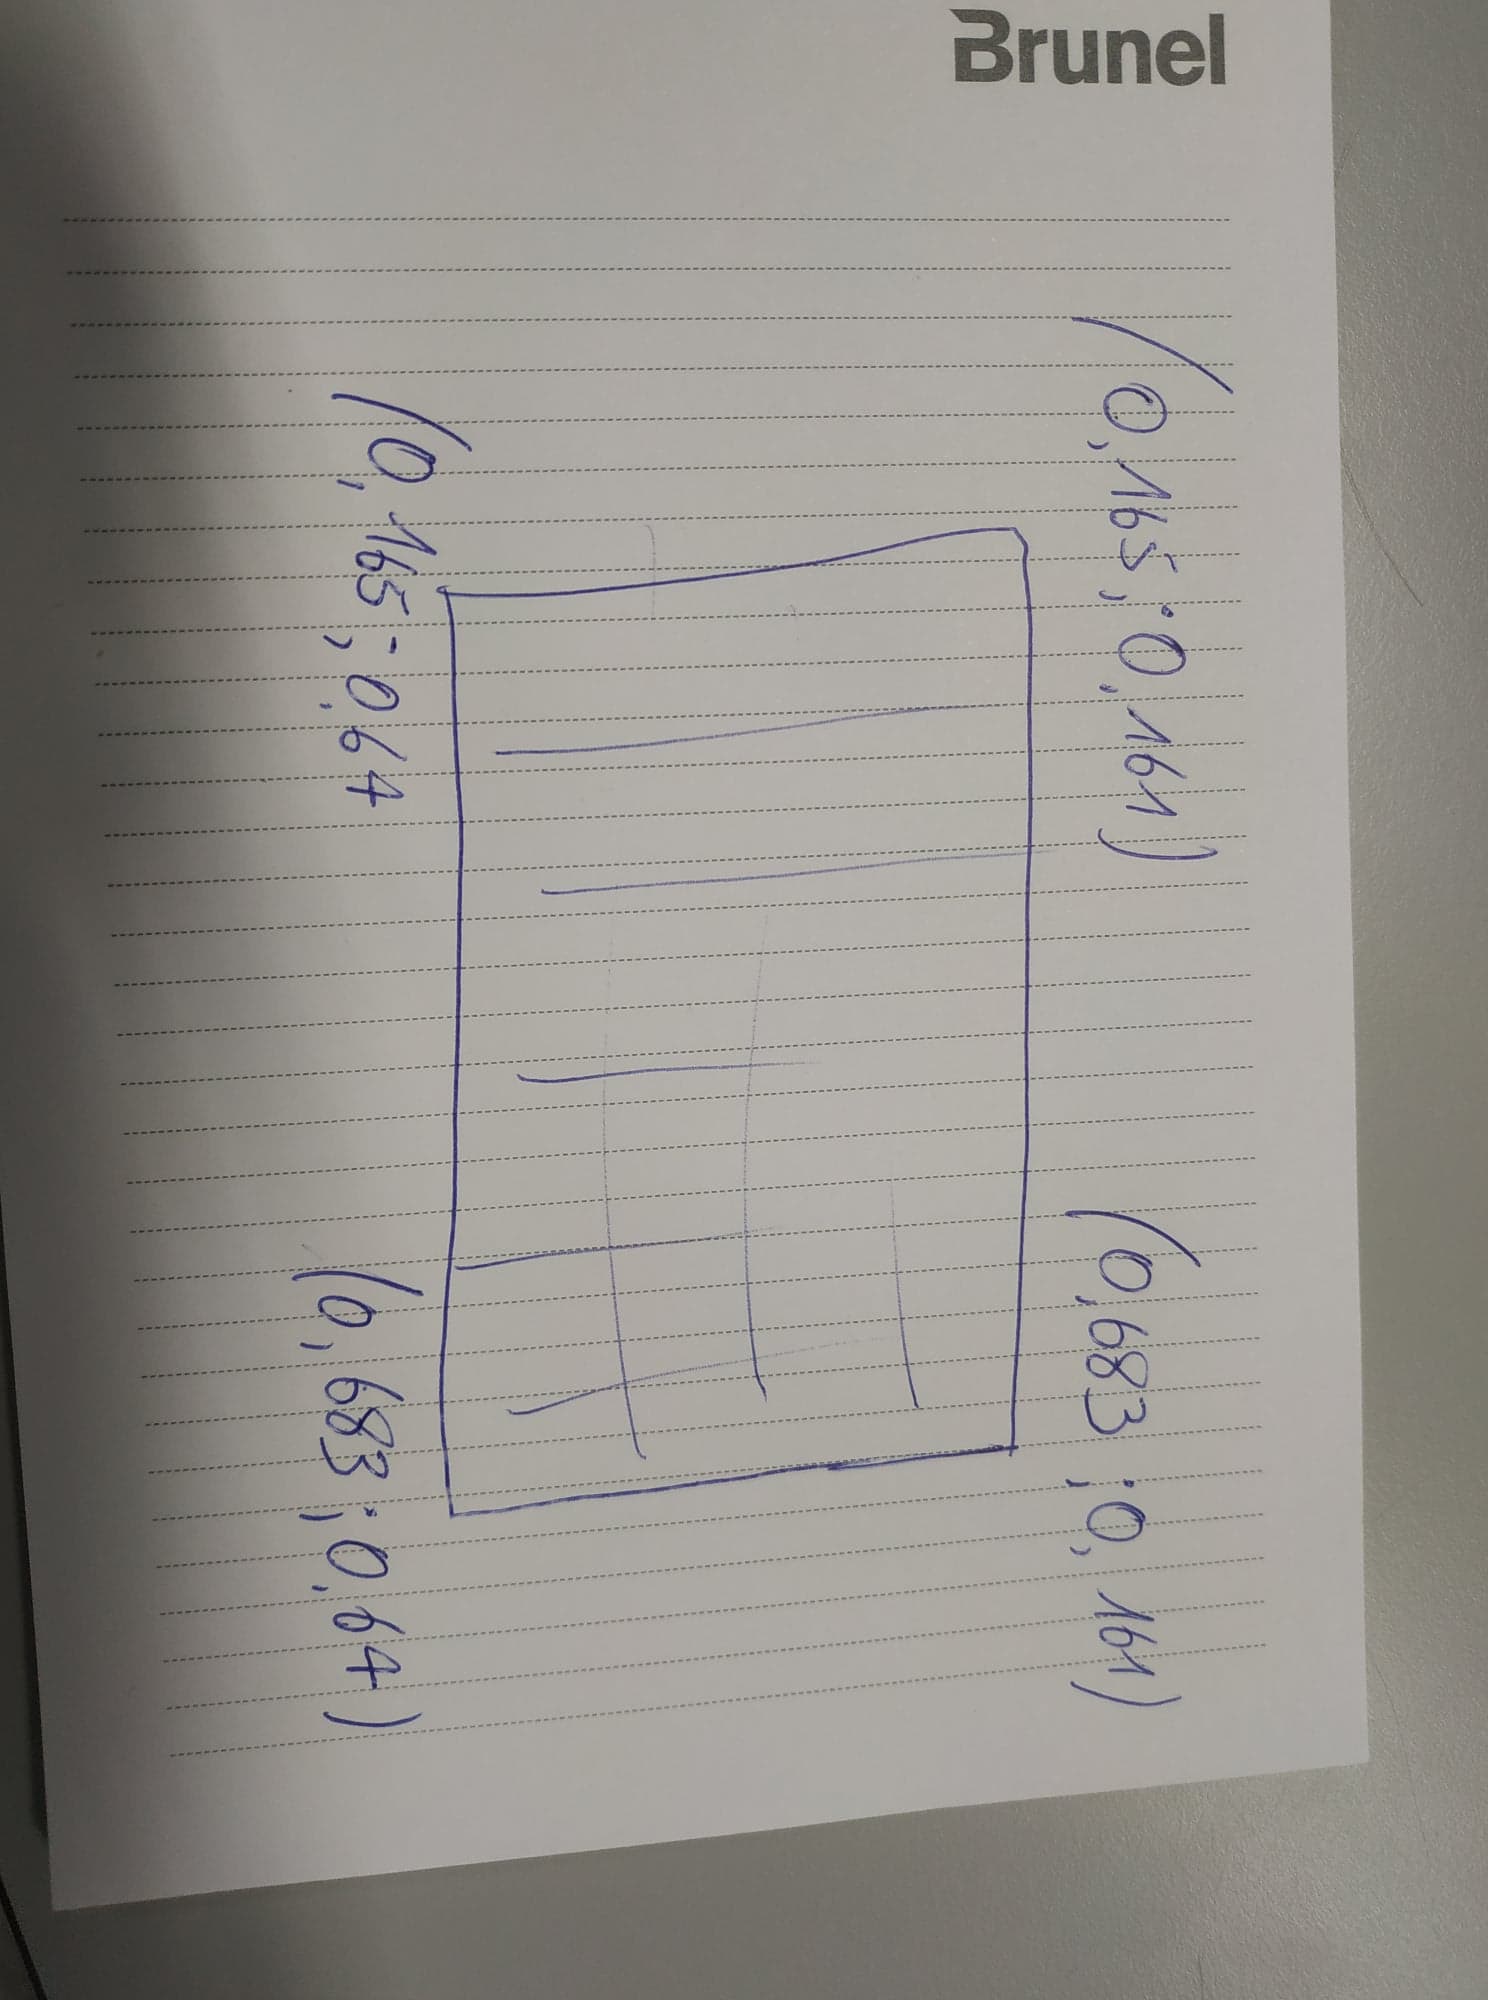 Brunel
(0,165;0,161)
(0,683;0,161)
(0,165;0,64
(0,683;0,64)